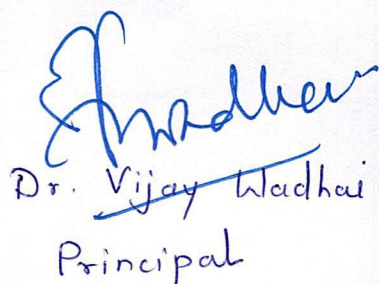 Dr. Vijay Wadhai
Principal